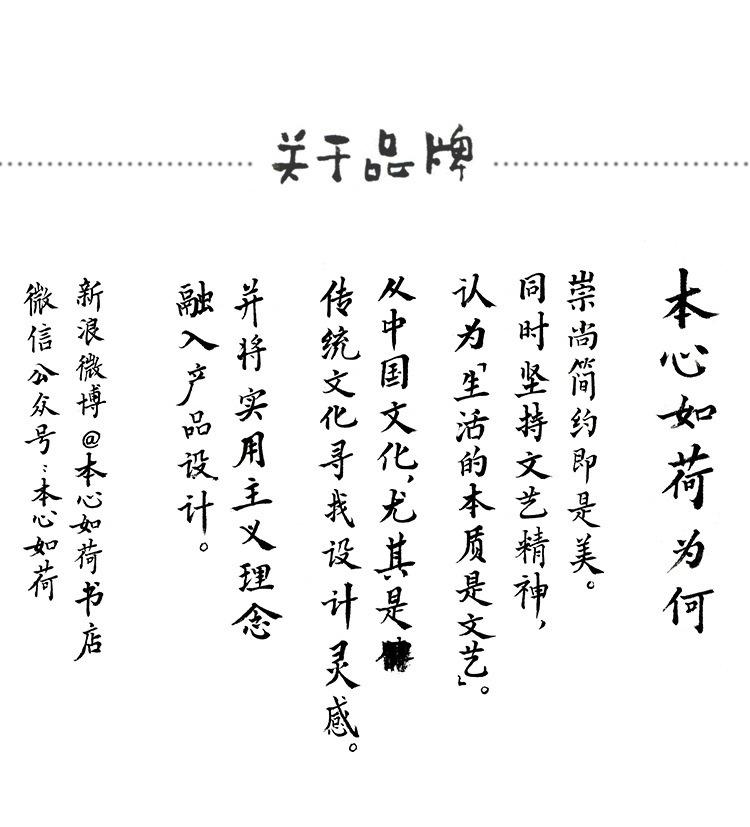 关于品牌
本心如荷为何
崇尚简约即是美。
同时坚持文艺精神，
认为「生活的本质是文艺」。
从中国文化，尤其是
传统文化寻找设计灵感。
并将实用主义理念
融入产品设计。
新浪微博@本心如荷书店
微信公众号：本心如荷